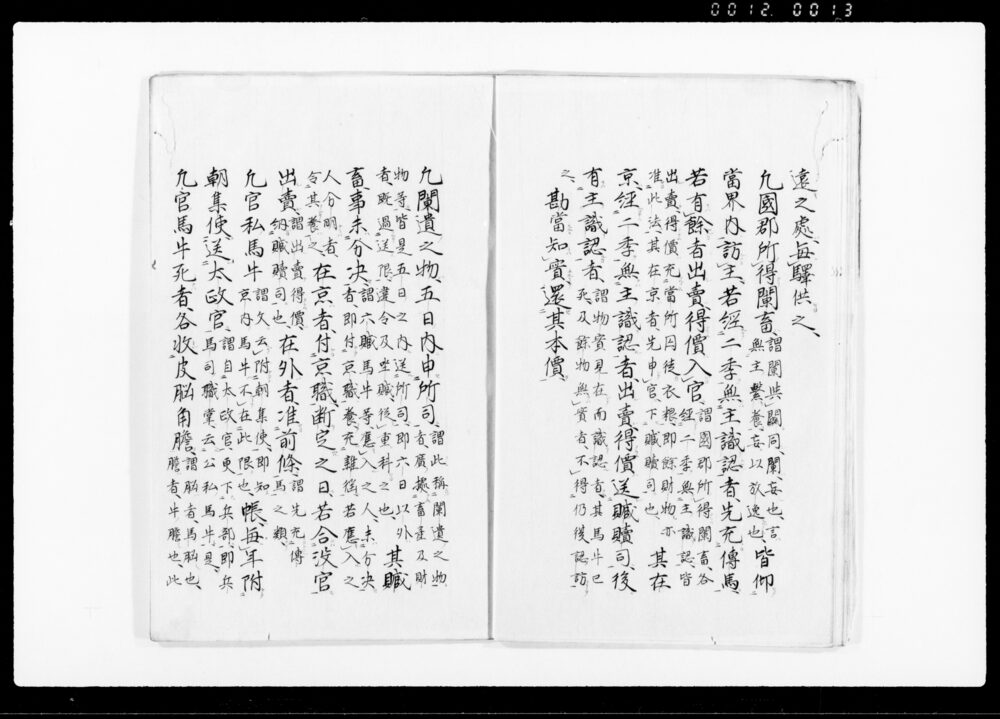 0012 0013
遠之處毎驛供之
凡國郡所得闌畜謂闌与闌同闌妄也言無主繫養妄以放逸也皆仰
當界内訪主若經二季無主識認者先充傳馬
若有餘者出賣得價入官謂國郡所得闌畜各經二季無主識認皆
出賣得價充當所囚徒衣粮即餘財物亦准此法其在京者先申官下贓贖司也其在
京經二季無主識認者出賣得價送贓贖司後
有主識認者謂物實見在而識認者其馬牛已死及餘物無實者不得仍後認訪
之勘當知實還其本價
凡闌遺之物五日内申所司謂此稱闌遺之物者廣據畜産及財
物等皆是五日之内送所司即六日以外者既過送限違令及坐贓後重科之也其贓
畜事未分决謂六贓馬牛等應入之人未分决者即付京職養充雜徭若應入之
人分明者令其養之在京者付京職断定之日若合没官
出賣謂出賣得價納贓贖司也在外者准前條謂先充傳馬之類
凡官私馬牛謂欠去附朝集使即知京内馬牛不在此限也帳毎年附
朝集使送太政官謂自太政官更下兵部即兵馬司職掌云公私馬牛是
凡官馬牛死者各收皮脳角膽謂脳者馬脳也膽者牛膽也此